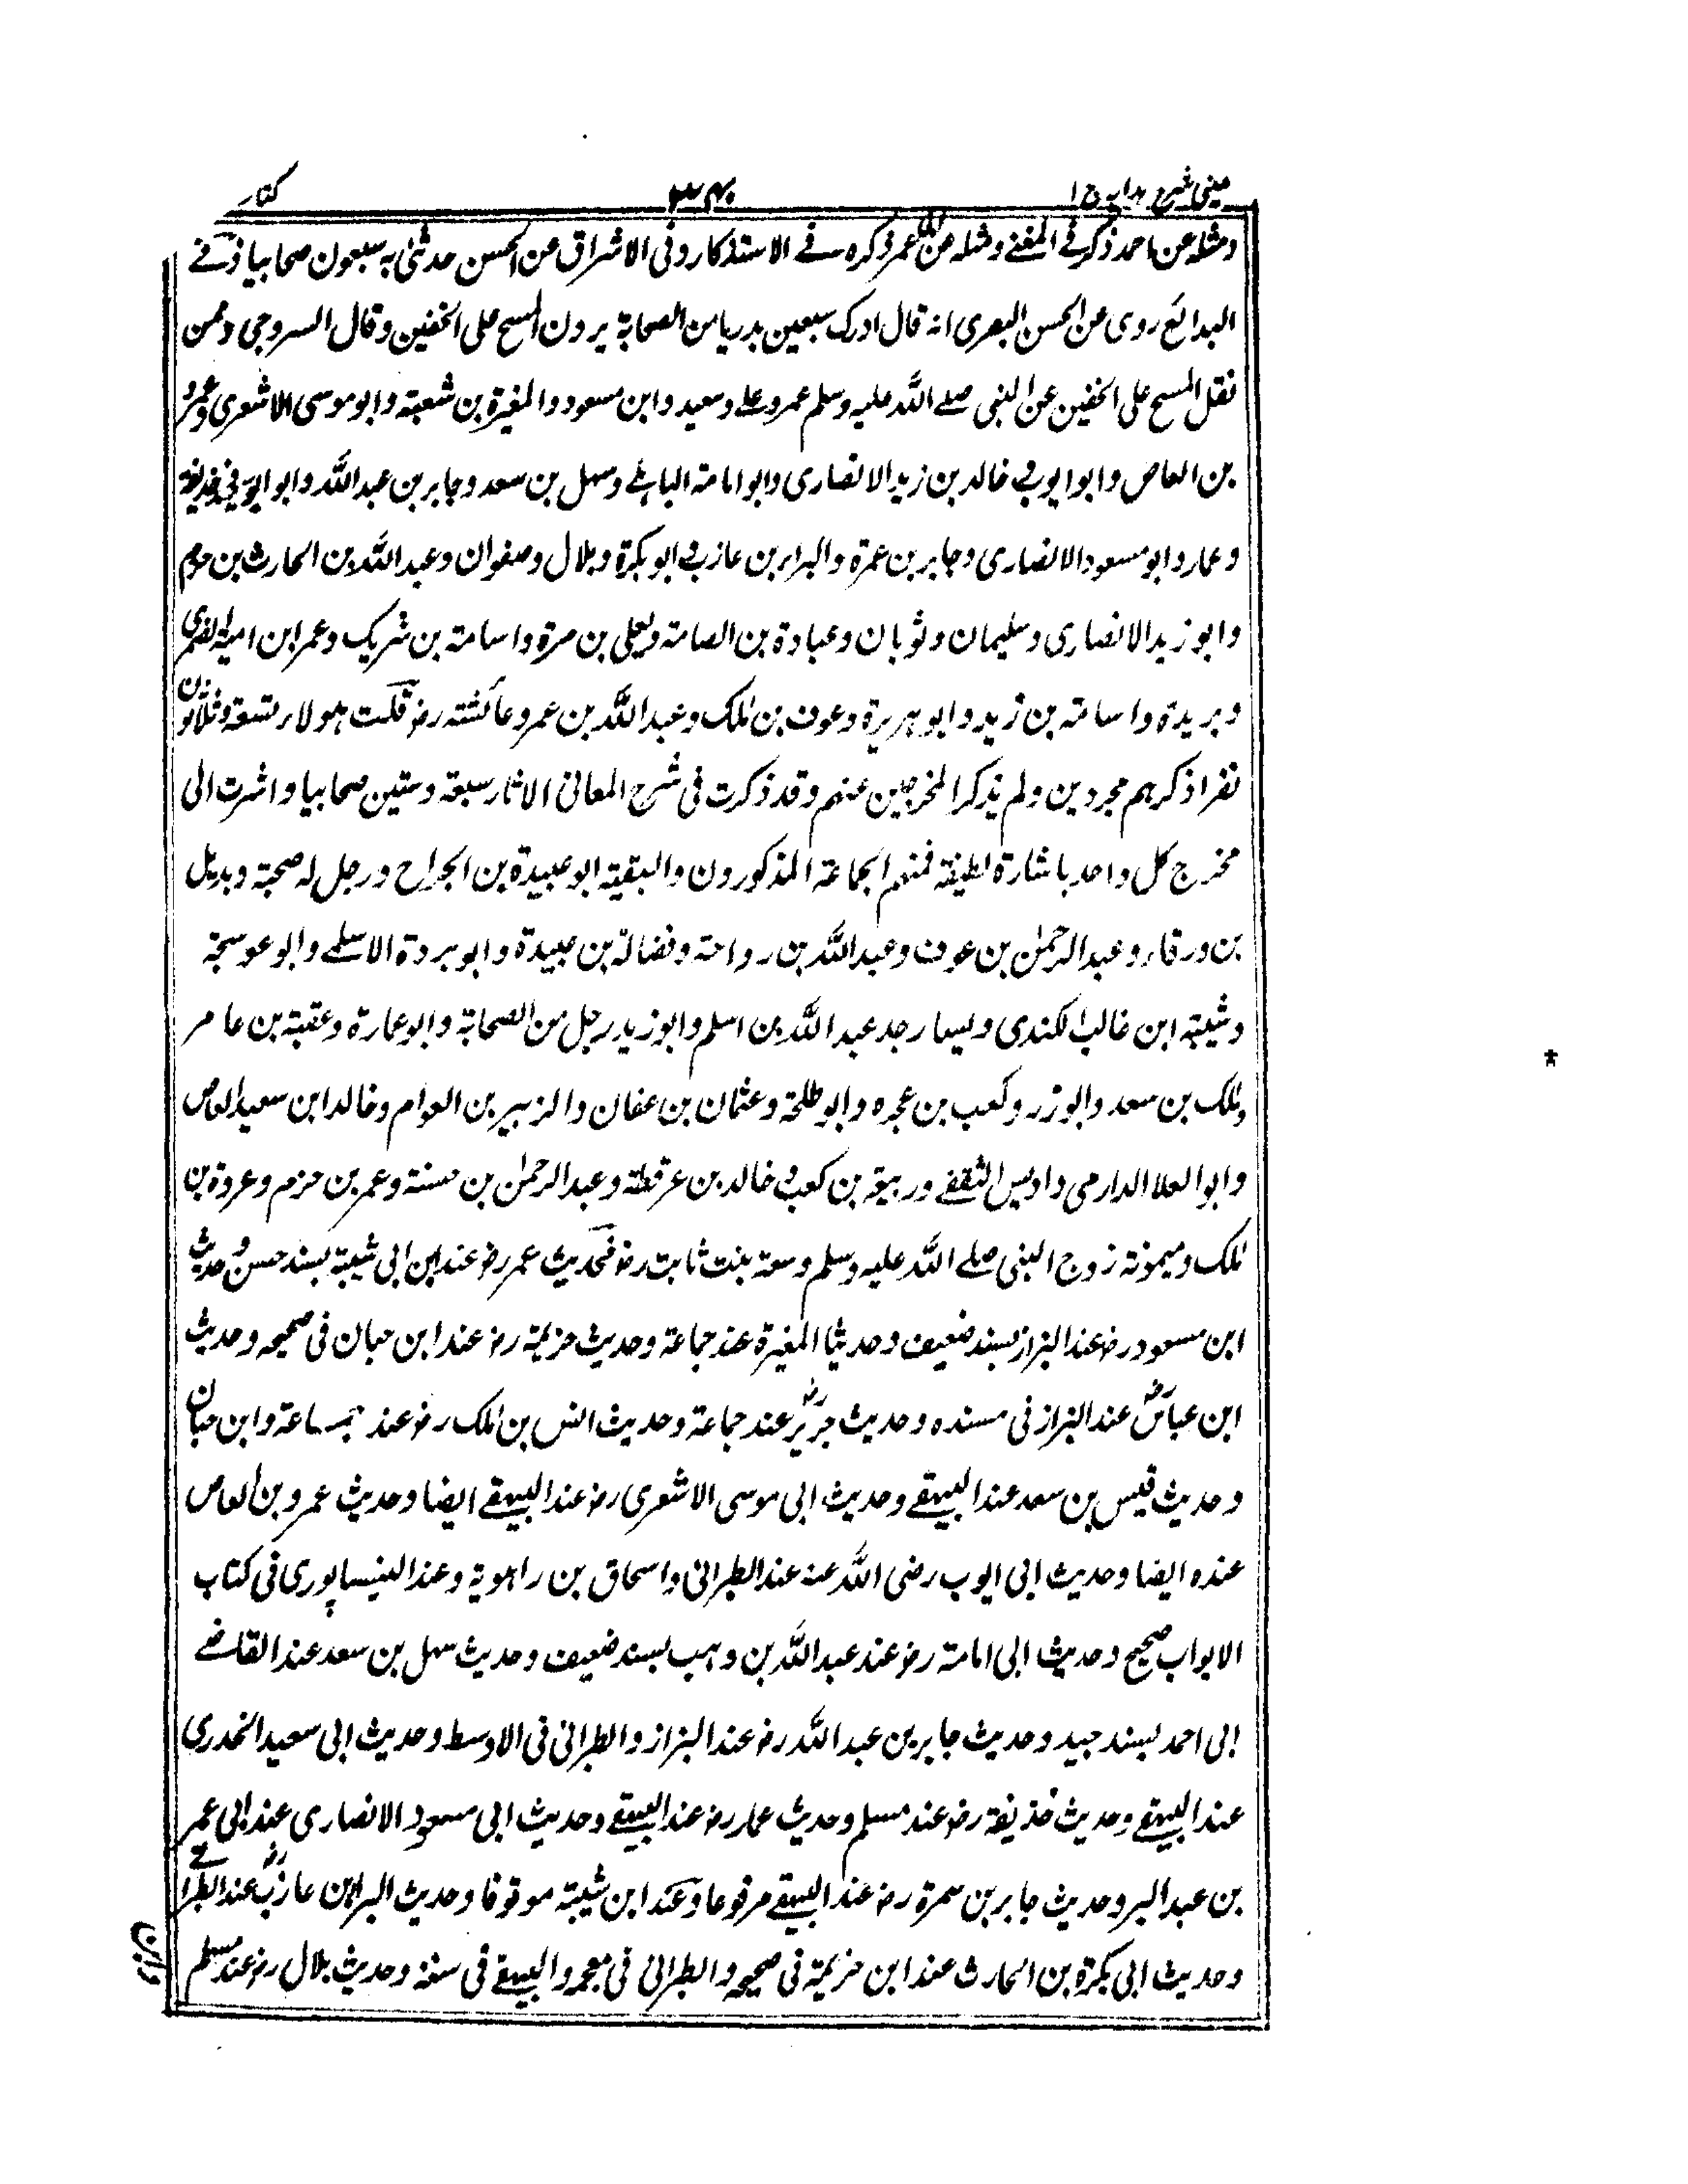 عینی شرح ہدایہ ج ا
کتاب
ومثله عن احمد ذكره فی المغنے ومثله عن عمر ذكره فے الاستذكار وفی الاشراق عن الحسن حدثنی به سبعون صحابيا وفے
البدائع روى عن الحسن البصرى انه قال ادرک سبعين بدريا من الصحابة يرون المسح على الخفين وقال السروجی وممن
نقل المسح على الخفين عن النبی صلے اللہ عليه وسلم عمر وعلے وسعيد وابن مسعود والمغيرة بن شعبة وابو موسى الاشعرى وعمرو
بن العاص وابو ايوب خالد بن زيد الانصارى وابو امامة الباہلے وسهل بن سعد وجابر بن عبد اللہ وابو وحذيفة
وعمار وابو مسعود الانصارى وجابر بن عمرة والبراء بن عازب وابو بكرة وبلال وصفوان وعبد اللہ بن الحارث بن
وابو زيد الانصارى وسليمان وثوبان وعبادة بن الصامة ويعلى بن مرة واسامة بن شريک وعمر ابن امية الضمرى
وبريدة واسامة بن زيد وابو هريرة وعوف بن ملک وعبد اللہ بن عمر وعائشته رضہ قلت هولاء تسعة وثلاثون
نفرا ذكرهم مجردين ولم يذكر المخرجين عنهم وقد ذكرت فی شرح المعانی الاثار سبعة وستين صحابيا واشرت الى
مخرج كل واحد باشارة لطيفة فمنهم الجماعة المذكورون والبقية ابو عبيدة بن الجراح ورجل له صحبة وبديل
بن ورقاء وعبد الرحمٰن بن عوف وعبد اللہ بن رواحة وفضالة بن عبيدة وابو بردة الاسلمے وابو عوسجة
وشيبة ابن غالب الكندى ويسار جد عبد اللہ بن اسلم وابو زيد رجل من الصحابة وابو عمارة وعقبة بن عامر
وملک بن سعد وابو زر وكعب بن عجره وابو طلحة وعثمان بن عفان والزبير بن العوام وخالد ابن سعيد العاص
وابو العلا الدارمی واديس الثقفے وربيعة بن كعب وخالد بن عرفطة وعبد الرحمٰن بن حسنة وعمر بن حزم وعروة بن
ملک وميمونة زوج النبی صلے اللہ عليه وسلم وسعة بنت ثابت رضہ فحديث عمر رضہ عند ابن ابی شيبة بسند حسن وحديث
ابن مسعود رضہ عند البزاز بسند ضعيف وحديثا المغيرة عند جماعة وحديث حزيمة رضہ عند ابن حبان فی صحيحه وحديث
ابن عباس رضہ عند البزاز فی مسنده وحديث جرير رضہ عند جماعة وحديث انس بن ملک رضہ عند جماعة وابن حبان
وحديث قيس بن سعد عند البيهقے وحديث ابی موسى الاشعرى رضہ عند البيهقے ايضا وحديث عمرو بن العاص
عنده ايضا وحديث ابی ايوب رضی اللہ عنه عند الطبرانی واسحاق بن راهوية وعند النيساپورى فی كتاب
الابواب صحيح وحديث ابی امامة رضہ عند عبد اللہ بن وهب بسند ضعيف وحديث سهل بن سعد عند القاضے
ابی احمد بسند جيد وحديث جابر بن عبد اللہ رضہ عند البزاز والطبرانی فی الاوسط وحديث ابی سعيد الخدرى
عند البيهقے وحديث حذيفة رضہ عند مسلم وحديث عمار رضہ عند البيهقے وحديث ابی مسعود الانصارى عند ابی عمر
بن عبد البر وحديث جابر بن سمرة رضہ عند البيهقے مرفوعا وعند ابن شيبة موقوفا وحديث البراء بن عازب رضہ عند الطبرانے
وحديث ابی بكرة بن الحارث عند ابن خزيمة فی صحيحه والطبرانی فی معجمه والبيهقے فی سننه وحديث بلال رضہ عند مسلم